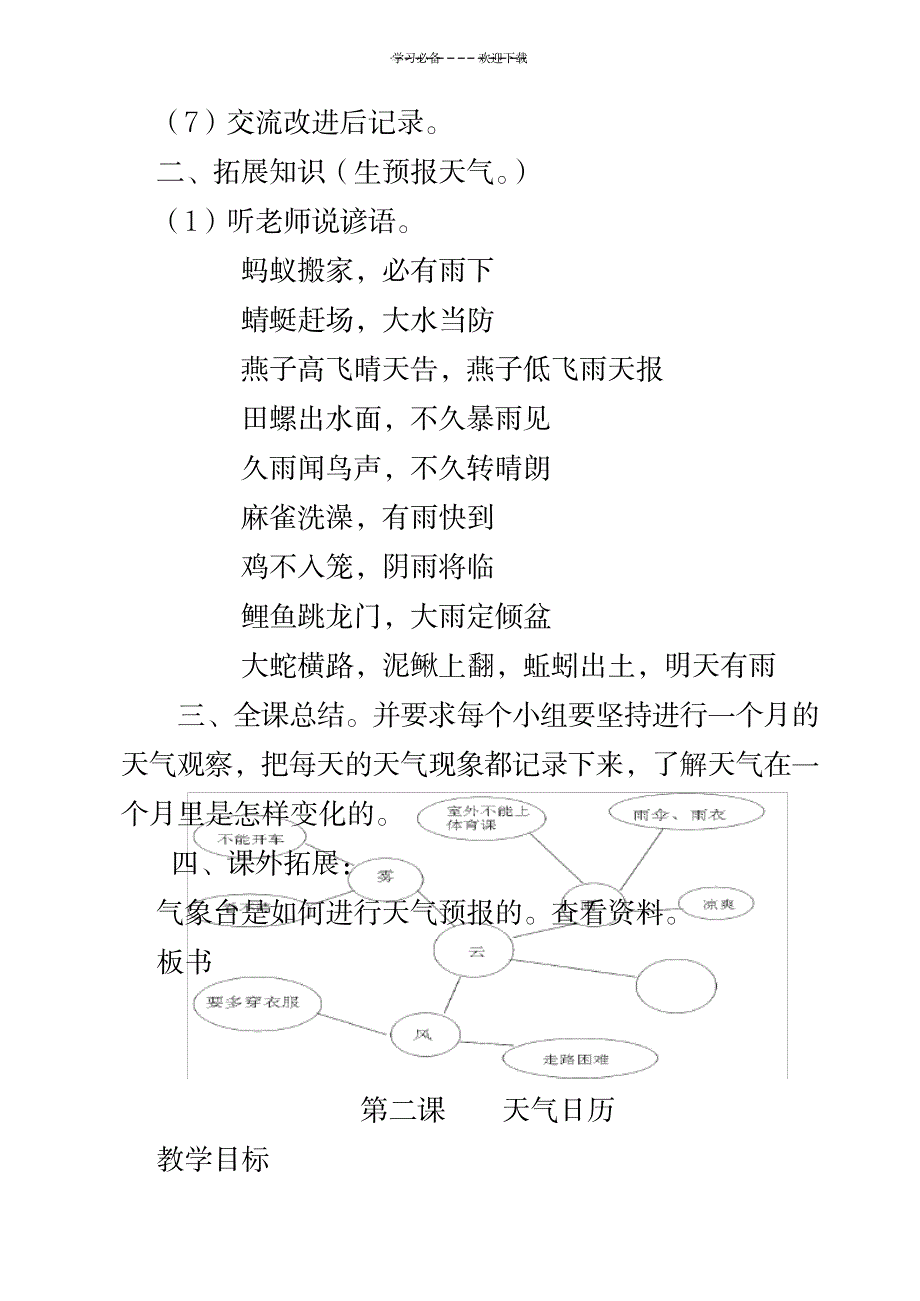 学习必备 ---- 欢迎下载
（7）交流改进后记录。
二、拓展知识（生预报天气。）
（1）听老师说谚语。
蚂蚁搬家，必有雨下
蜻蜓赶场，大水当防
燕子高飞晴天告，燕子低飞雨天报
田螺出水面，不久暴雨见
久雨闻鸟声，不久转晴朗
麻雀洗澡，有雨快到
鸡不入笼，阴雨将临
鲤鱼跳龙门，大雨定倾盆
大蛇横路，泥鳅上翻，蚯蚓出土，明天有雨
三、全课总结。并要求每个小组要坚持进行一个月的
天气观察，把每天的天气现象都记录下来，了解天气在一
个月里是怎样变化的。
室外不能上
体育课
雨伞、雨衣
不能开车
四、课外拓展：
雾
气象台是如何进行天气预报的。查看资料。
凉爽
云
板书
要多穿衣服
风
走路困难
第二课 天气日历
教学目标